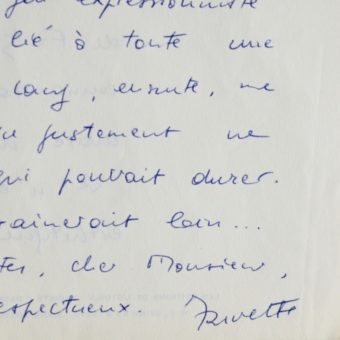 jeu expressionniste
lié à toute une
Lang, ensuite, ne
u justement ne
qui pouvait durer.
rainerait loin...
ter, cher Monsieur,
espectueux. Rivette